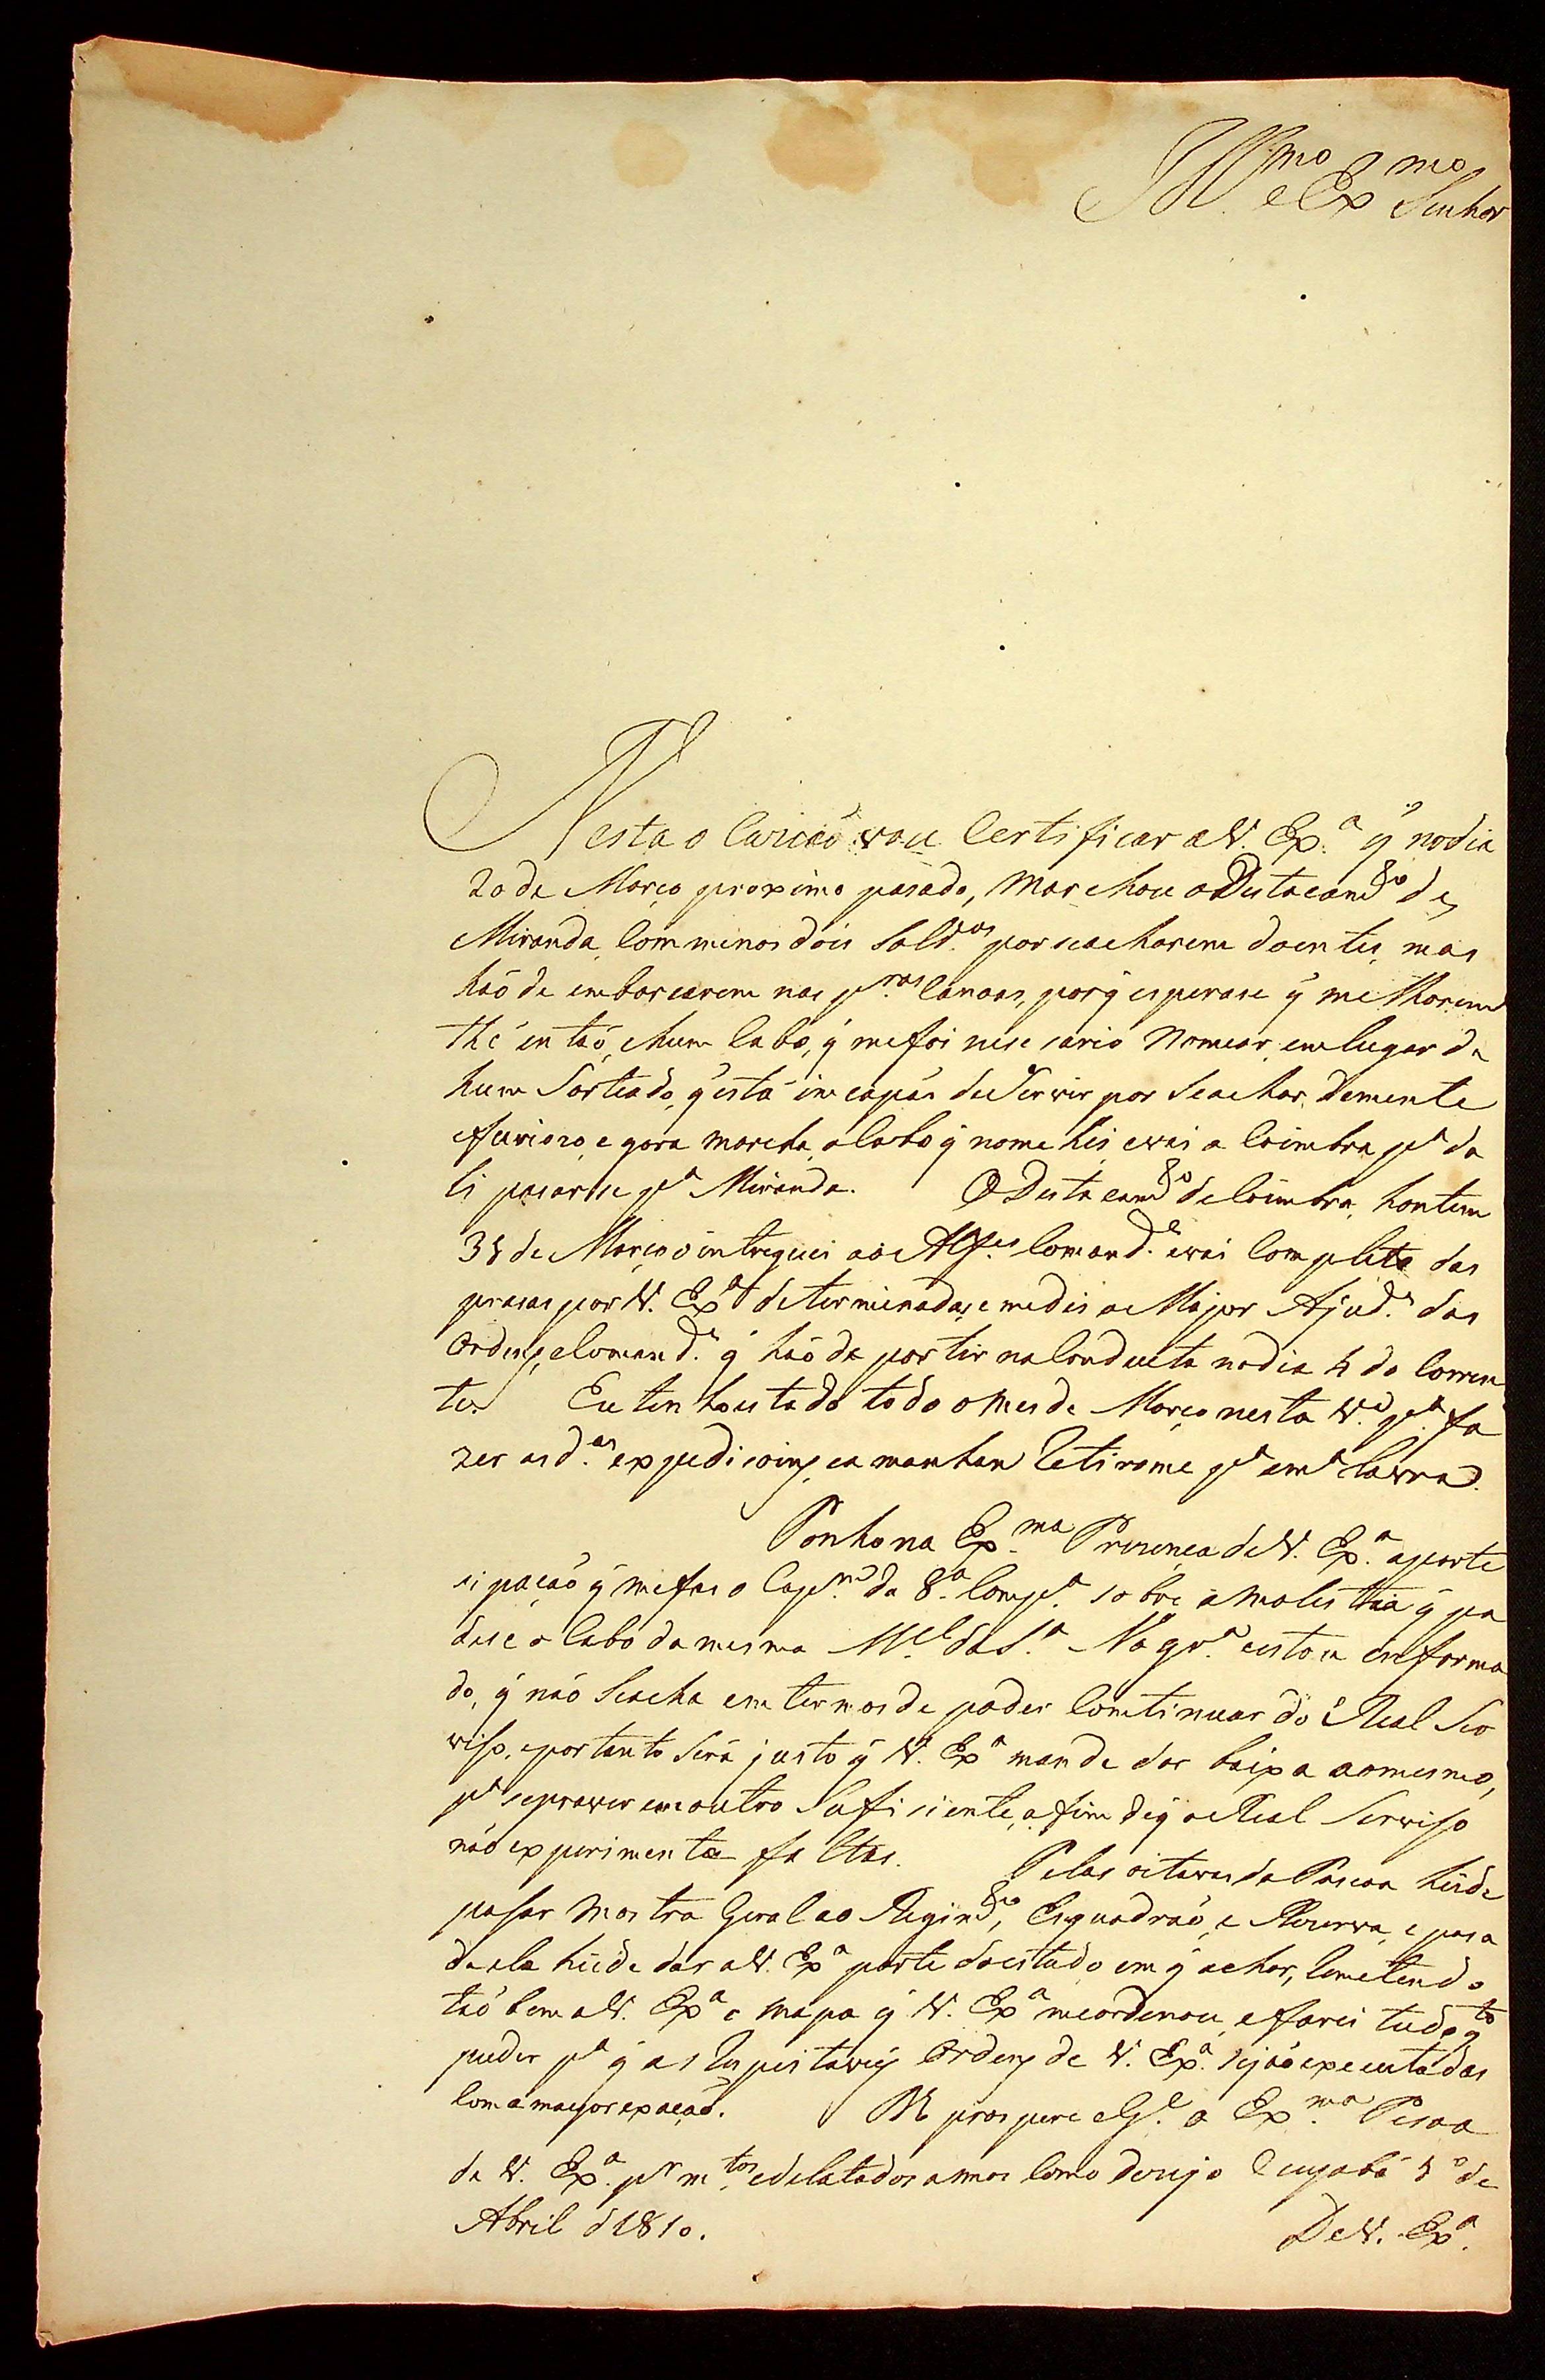 Illmo e Exmo Senhor
Nesta ocaziaõ vou Certificar a V. Exª q̃ no dia
20 de Março proximo pasado, marchou o Destacamto de
Miranda, com menos dois Soldos por se acharem doentes, mas
haõ de embarcarem nas pras canoas, porq̃ esperase q̃ melhorem
thé entaõ, e hum Cabo, q̃ me foi nese sario Nomear, em lugar de
hum Sorteado, q̃ está incapás de Servir por Se achar demente
e furiozo, e gora marcha, o Cabo q̃ nome hei, e vai a Coimbra pª da
li pasarse pª Miranda. O Destacamto de Coimbra, hontem
31 de Março o intreguei ao Alfes Comande e vai Completo das
prasas por V. Exª determinadas, e me dis o Major Ajude das
Ordens, e Comande q̃ haõ de partir na Conducta no dia 4 do Corren
te. Eu tenho estado todo o mes de Março nesta Vª pª fa
zer as das expedicoins, e a manhan Retirome pª a mª Lavra.
Ponho na Exma Prezença de V. Exª a parte
si paçaõ q̃ me fas o Capm da 8ª Compª sobre a molestia q̃ pa
dese o Cabo da mesma Mel da Sª Nogrª e estou enforma
do, q̃ naõ Seacha em termos de poder Comtinuar do Real Ser
viso, e por tanto Será justo q̃ V. Exª mande dar baixa ao mesmo,
pª se prover em outro Sufisiente, a fim de q̃ o Real Serviso
naõ experimente faltas. Pelas oitavas da Pascoa heide
pasar Mostra Geral ao Regimto, Esquadraõ, e Rezerva, e pasa
da ela heide dar a V. Exª parte do estado em q̃ achar, Remetendo
taõ bem a V. Exª o Mapa q̃ V. Exª me ordenou, e farei tudo qto
puder pª q̃ as Respeitaveis Ordens de V. Exª sejaõ executadas
Com a mayor exacaõ. Ds prospere e Ge a Exma Pesoa
de V. Exª pr mtos e delatados annos Como dezejo Cuyabá 1º de
Abril d 1810. De V. Exª